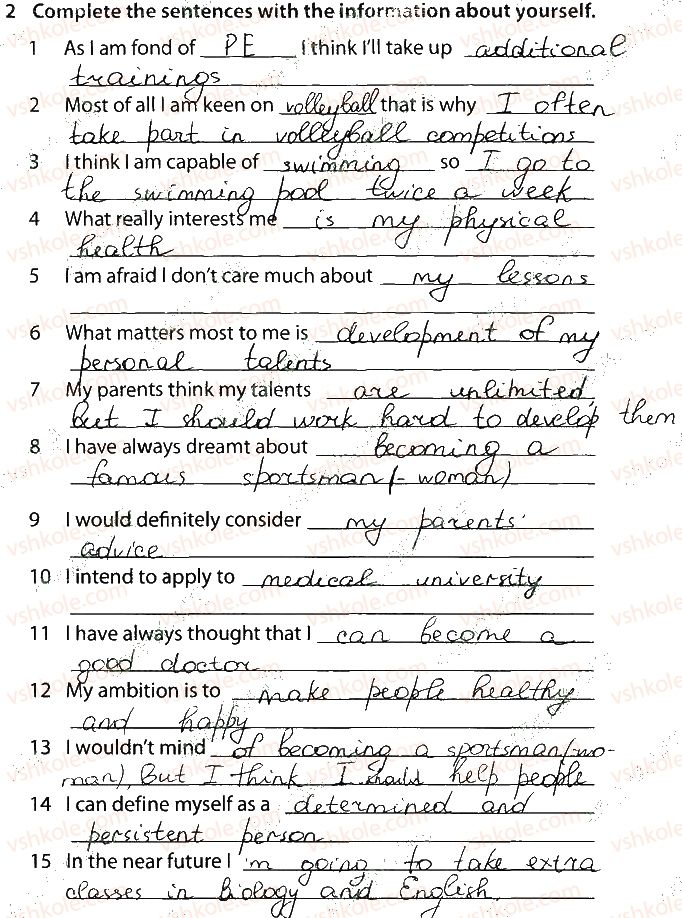 2 Complete the sentences with the information about yourself.
1 As I am fond of PE I think I'll take up additional
trainings
2 Most of all I am keen on volleyball that is why I often
take part in volleyball competitions
3 I think I am capable of swimming so I go to
the swimming pool twice a week
4 What really interests me is my physical
health
5 I am afraid I don't care much about my lessons
6 What matters most to me is development of my
personal talents
7 My parents think my talents are unlimited,
But I should work hard to develop them
8 I have always dreamt about becoming a
famous sportsman(-woman)
9 I would definitely consider my parents'
advice
10 I intend to apply to medical university
11 I have always thought that I can become a
good doctor
12 My ambition is to make people healthy
and happy
13 I wouldn't mind of becoming a sportsman(wo-
man), But I think I should help people
14 I can define myself as a determined and
persistent person
15 In the near future I 'm going to take extra
classes in Biology and English.